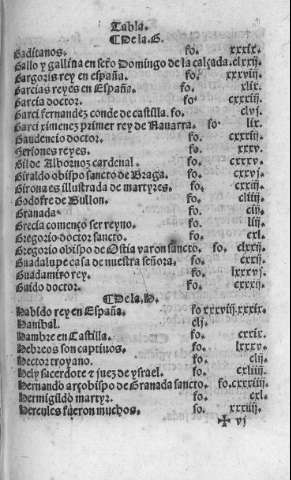 Tabla.
¶ De la G.
Gaditanos. fo. xxxix.
Gallo y gallina en scto Domingo de la calçada. clxxij.
Gargoris rey en españa. fo. xxxviij.
Garcias reyes en España. fo. xlix.
Garcia doctor. fo. cxxxiij.
Garci fernandez conde de castilla. fo. clvj.
Garci ximenez primer rey de Nauarra. fo. lx.
Gaudencio doctor. fo. cxxxiij.
Geriones reyes. fo. xxxv.
Gil de Albornoz cardenal. fo. cxxxv.
Giraldo obispo sancto de Braga. fo. cxxvj.
Girona es illustrada de martyres. fo. cxxiij.
Godofre de Bullon. fo. cliiij.
Granada. fo. clij.
Grecia començo ser reyno. fo. lij.
Gregorio doctor sancto. fo. cxl.
Gregorio obispo de Ostia varon sancto. fo. clxxij.
Guadalupe casa de nuestra señora. fo. cxxij.
Guadamiro rey. fo. lxxxvj.
Guido doctor. fo. cxxxij.
¶ De la H.
Habido rey en España. fo xxxviij.xxxix.
Hanibal. clj.
Hambre en Castilla. fo. cxxix.
Hebreos son captiuos. fo. lxxxv.
Hector troyano. fo. clij.
Hely sacerdote et juez de ysrael. fo. cxliiij.
Hernando arçobispo de Granada sancto. fo. cxxxiiij.
Hermigildo martyr. fo. cxl.
Hercules fueron muchos. fo. xxxiiij.
✠ vj